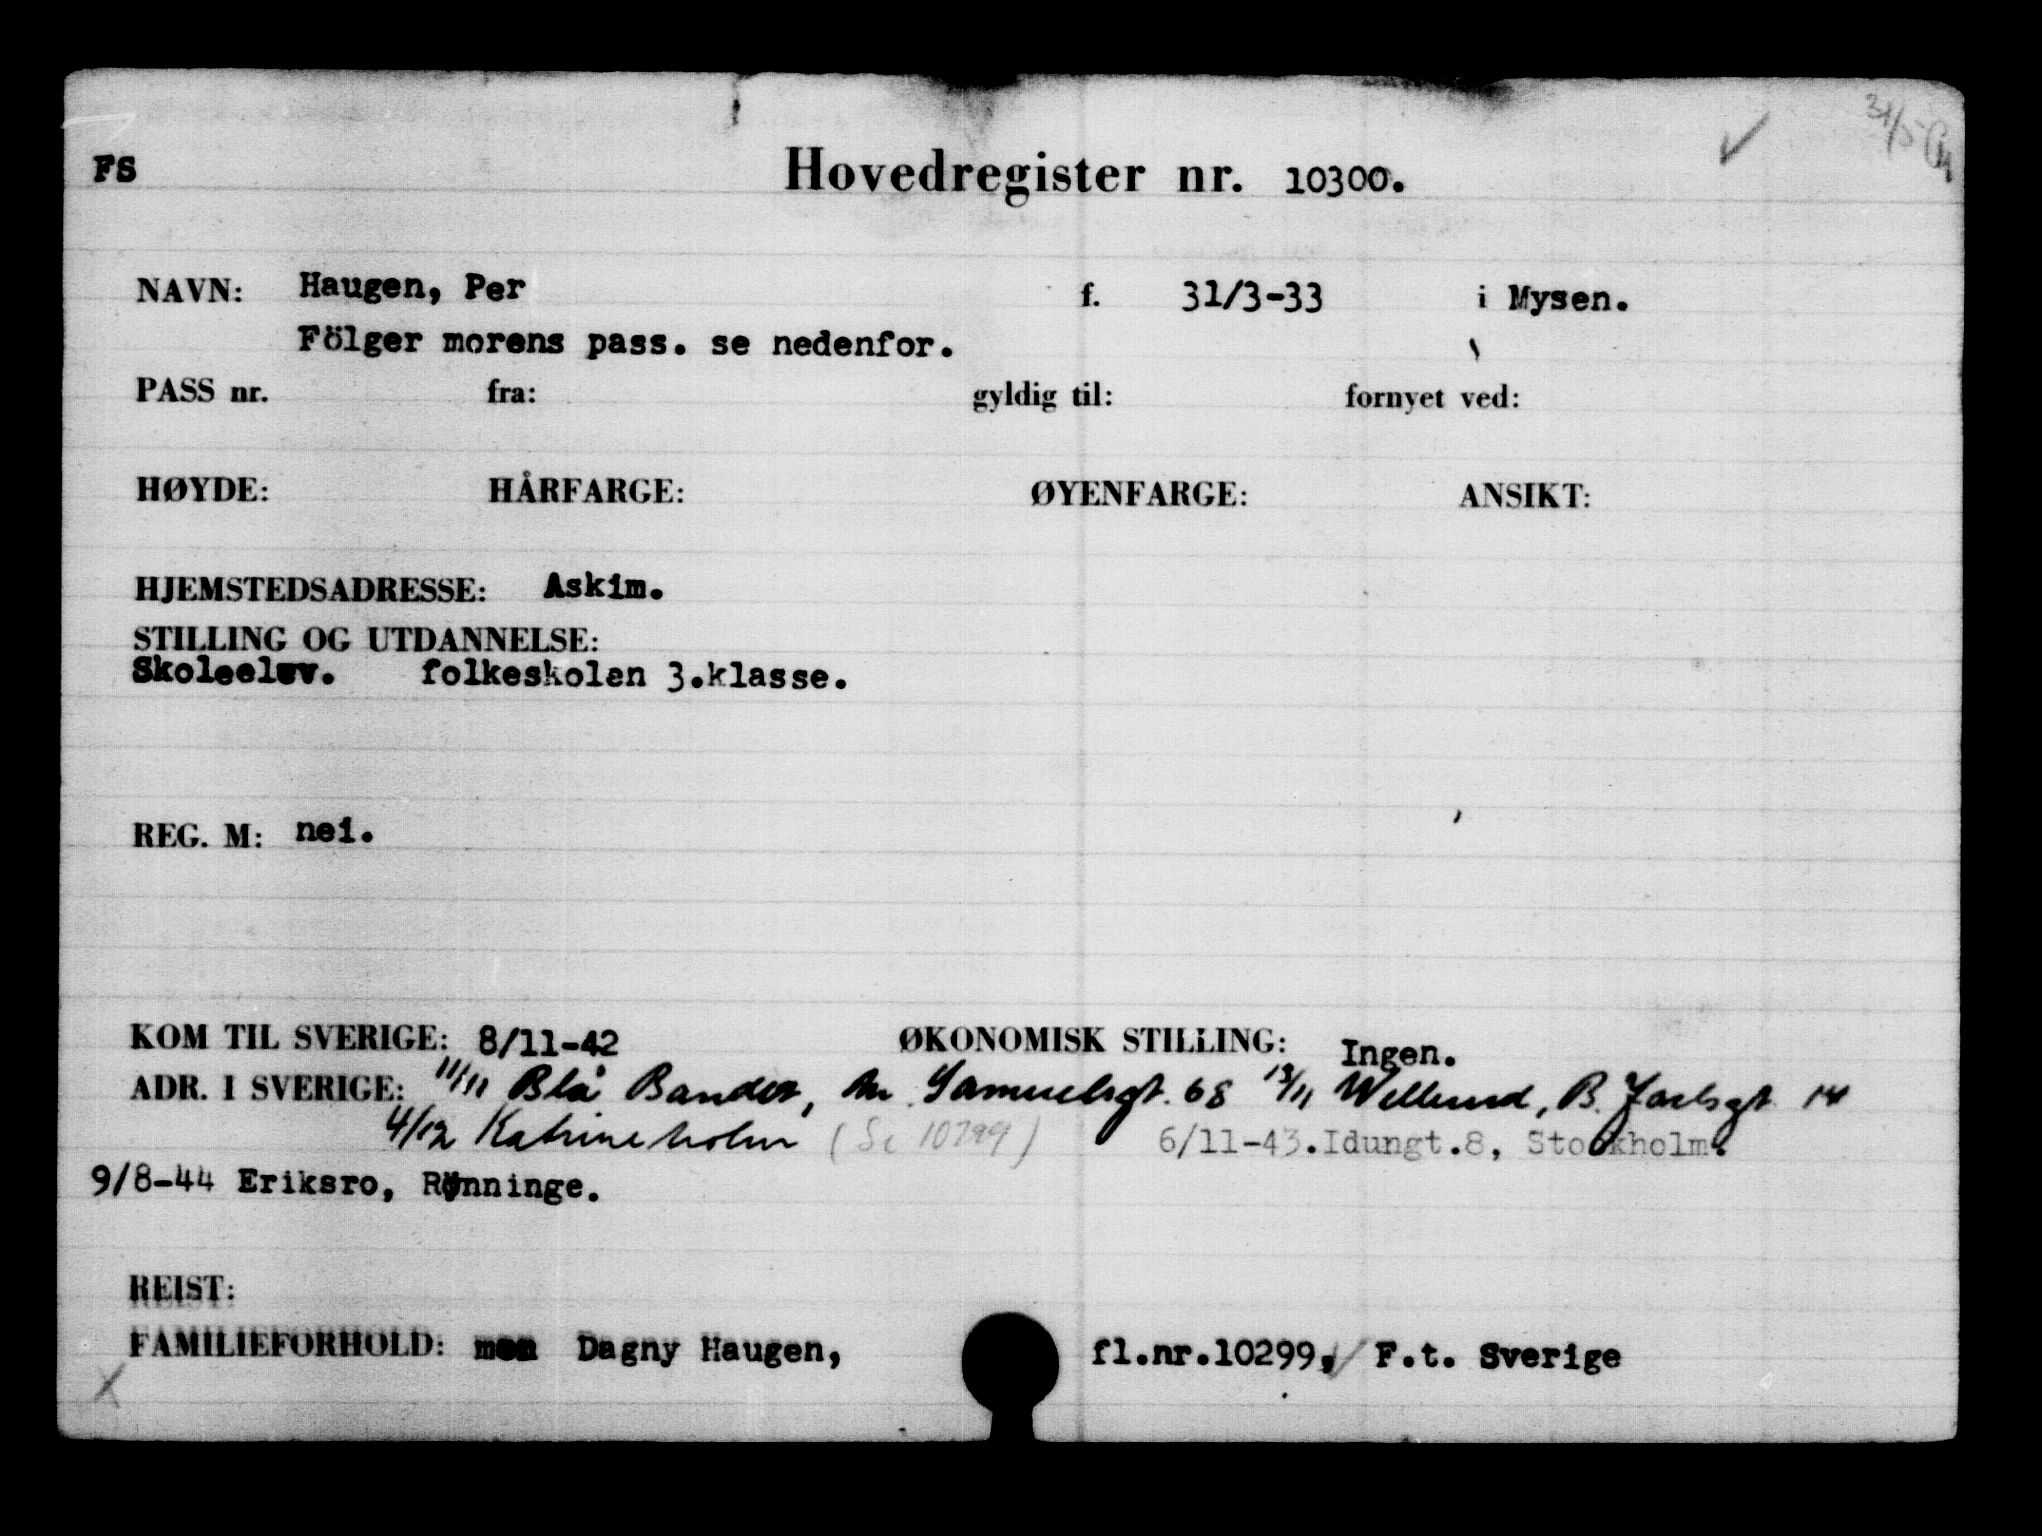 31/5
FS Hovedregister nr. 10300.
NAVN: Haugen, Per f. 31/3-33 i Mysen.
Fölger morens pass. se nedenfor.
PASS nr. fra: gyldig til: fornyet ved:
HØYDE: HÅRFARGE: ØYENFARGE: ANSIKT:
HJEMSTEDSADRESSE: Askim.
STILLING OG UTDANNELSE:
Skoleelev. folkeskolen 3.klasse.
REG. M: nei.
KOM TIL SVERIGE: 8/11-42 ØKONOMISK STILLING: Ingen.
ADR. I SVERIGE: 11/11 Blå Bandet, Samuelsgt. 68 13/11 B. Jarlsgt 14
4/12 Katrineholm (Se 10299) 6/11-43.Idungt.8, Stockholm.
9/8-44 Eriksro, Rønninge.
REIST:
FAMILIEFORHOLD: mor Dagny Haugen, fl.nr.10299, F.t. Sverige